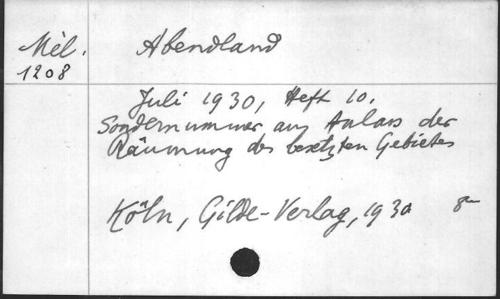 Mél. Abendland
1208
Juli 1930, Heft 10.
Sondernummer aus Anlass der
Räumung des besetzten Gebietes
Köln, Gilde-Verlag, 1930 8°